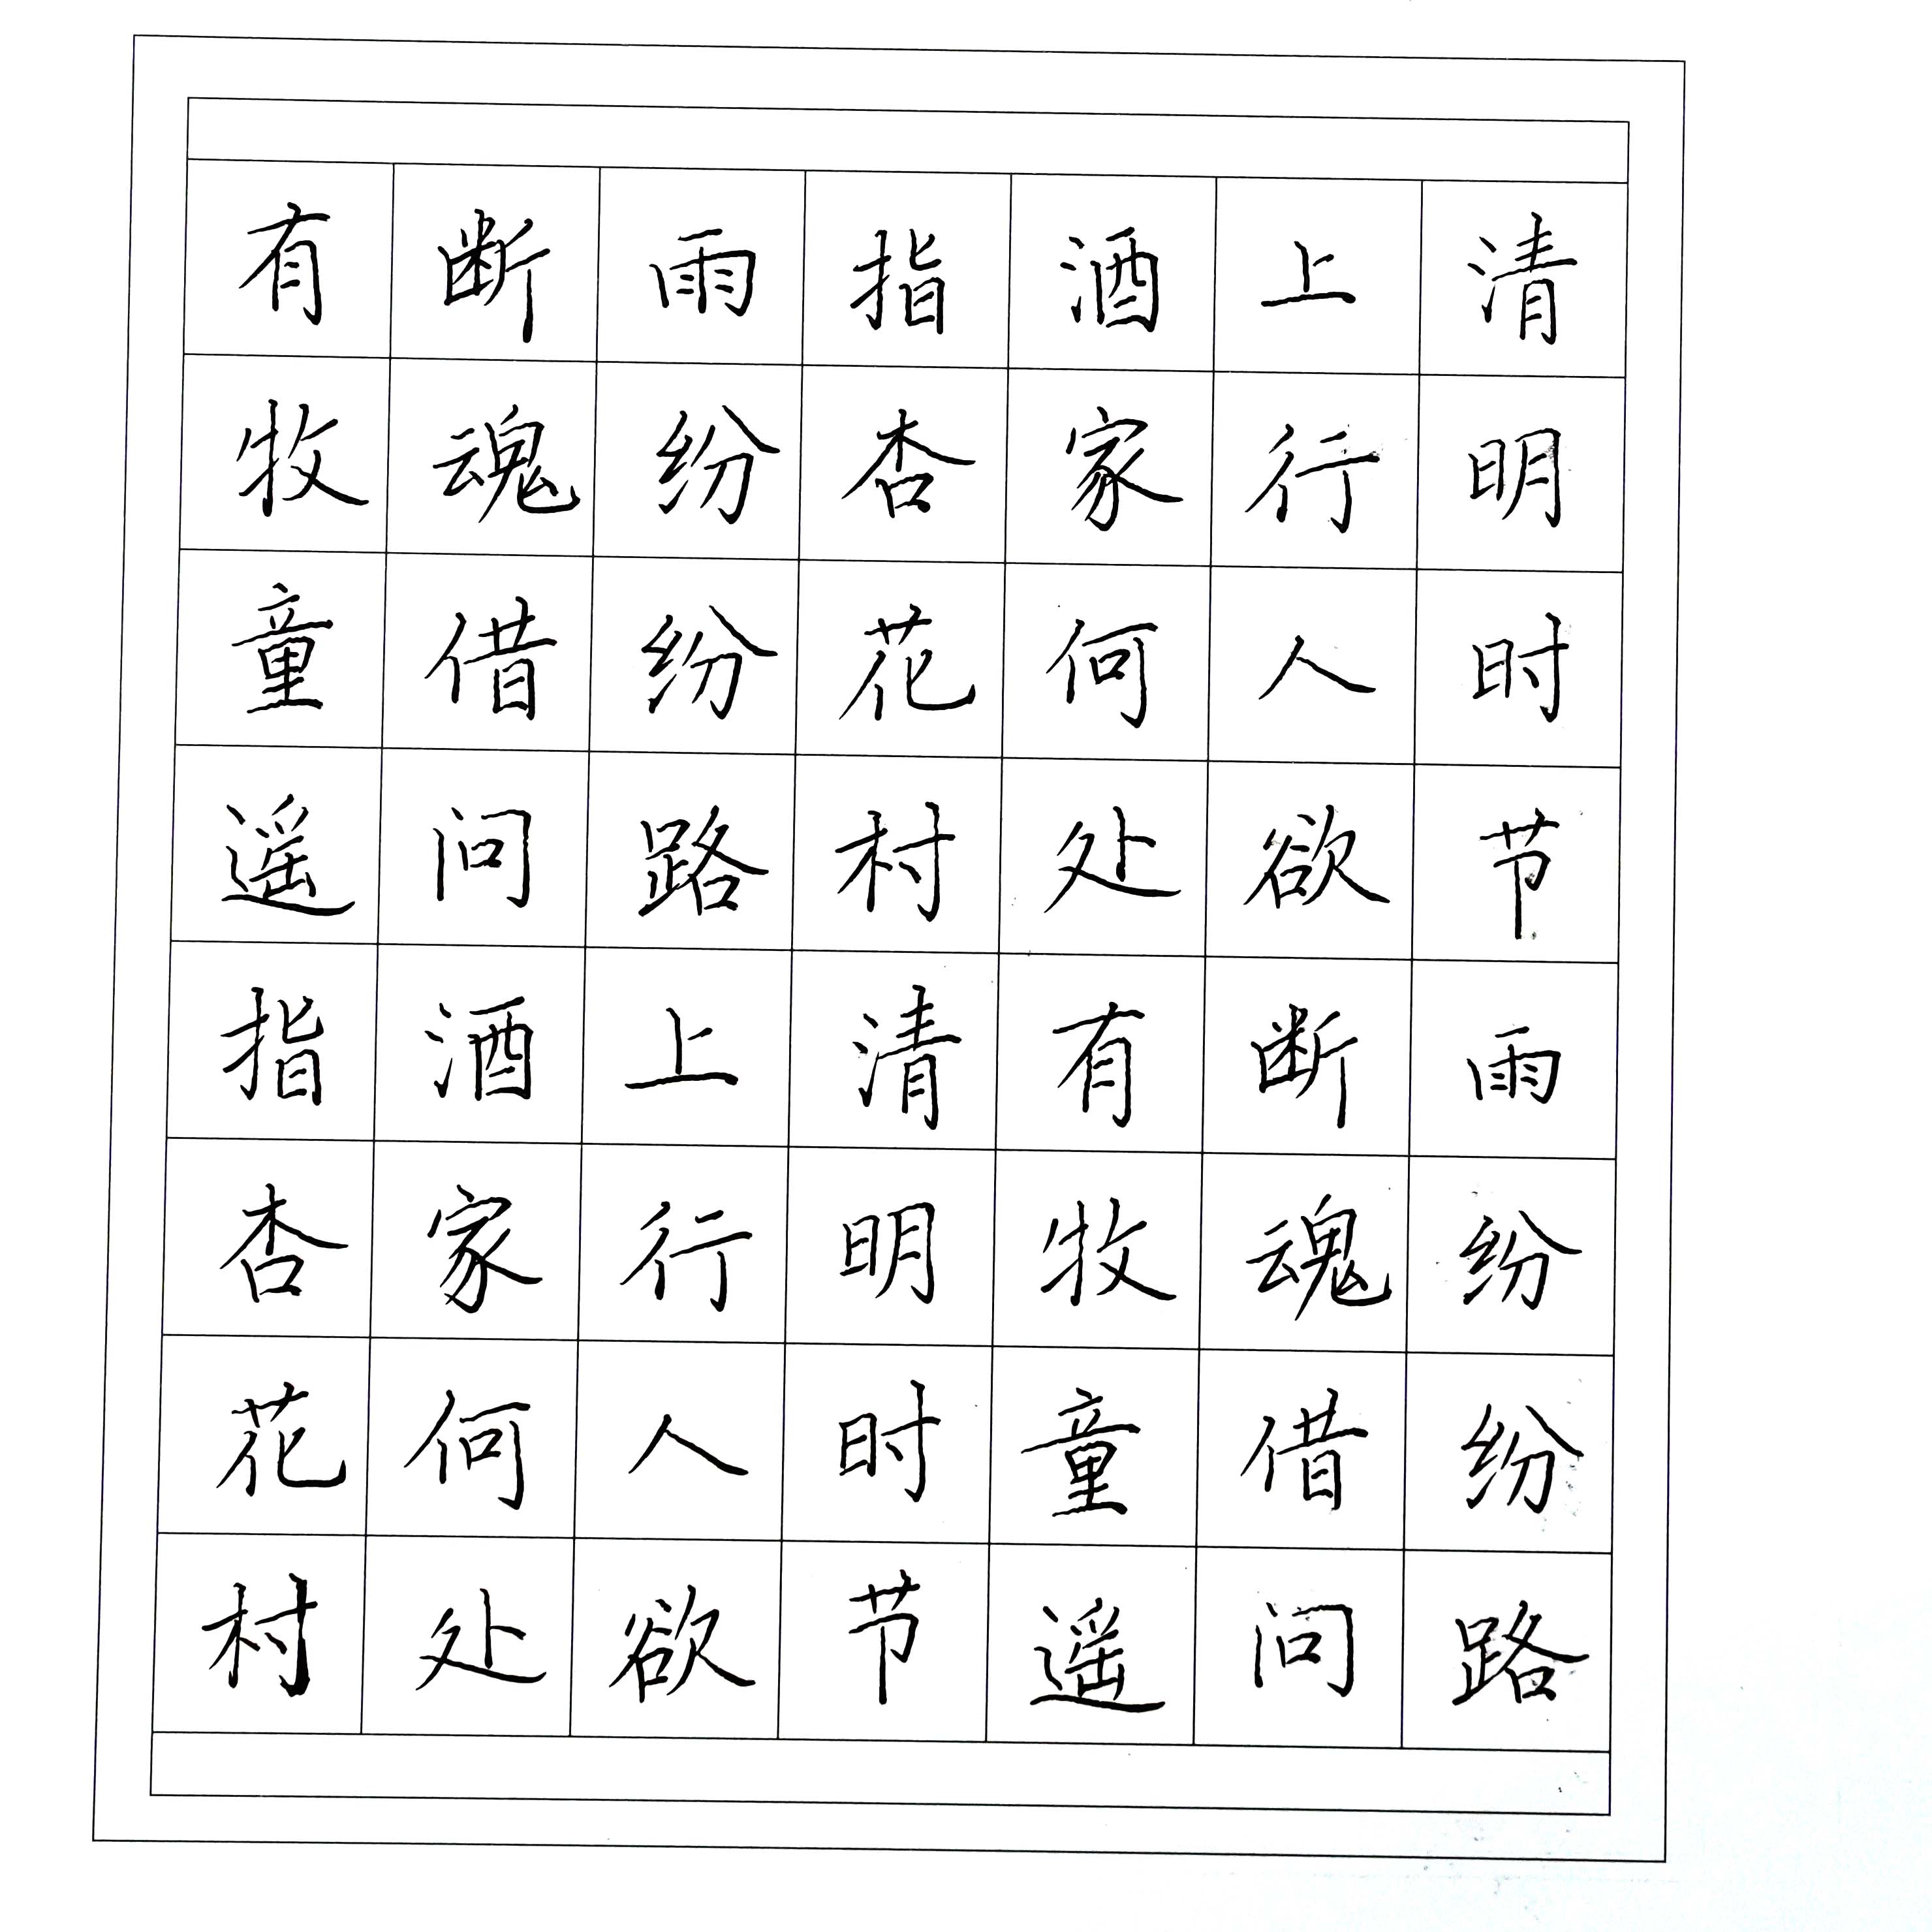 清明时节雨纷纷路
上行人欲断魂借问
酒家何处有牧童遥
指杏花村清明时节
雨纷纷路上行人欲
断魂借问酒家何处
有牧童遥指杏花村